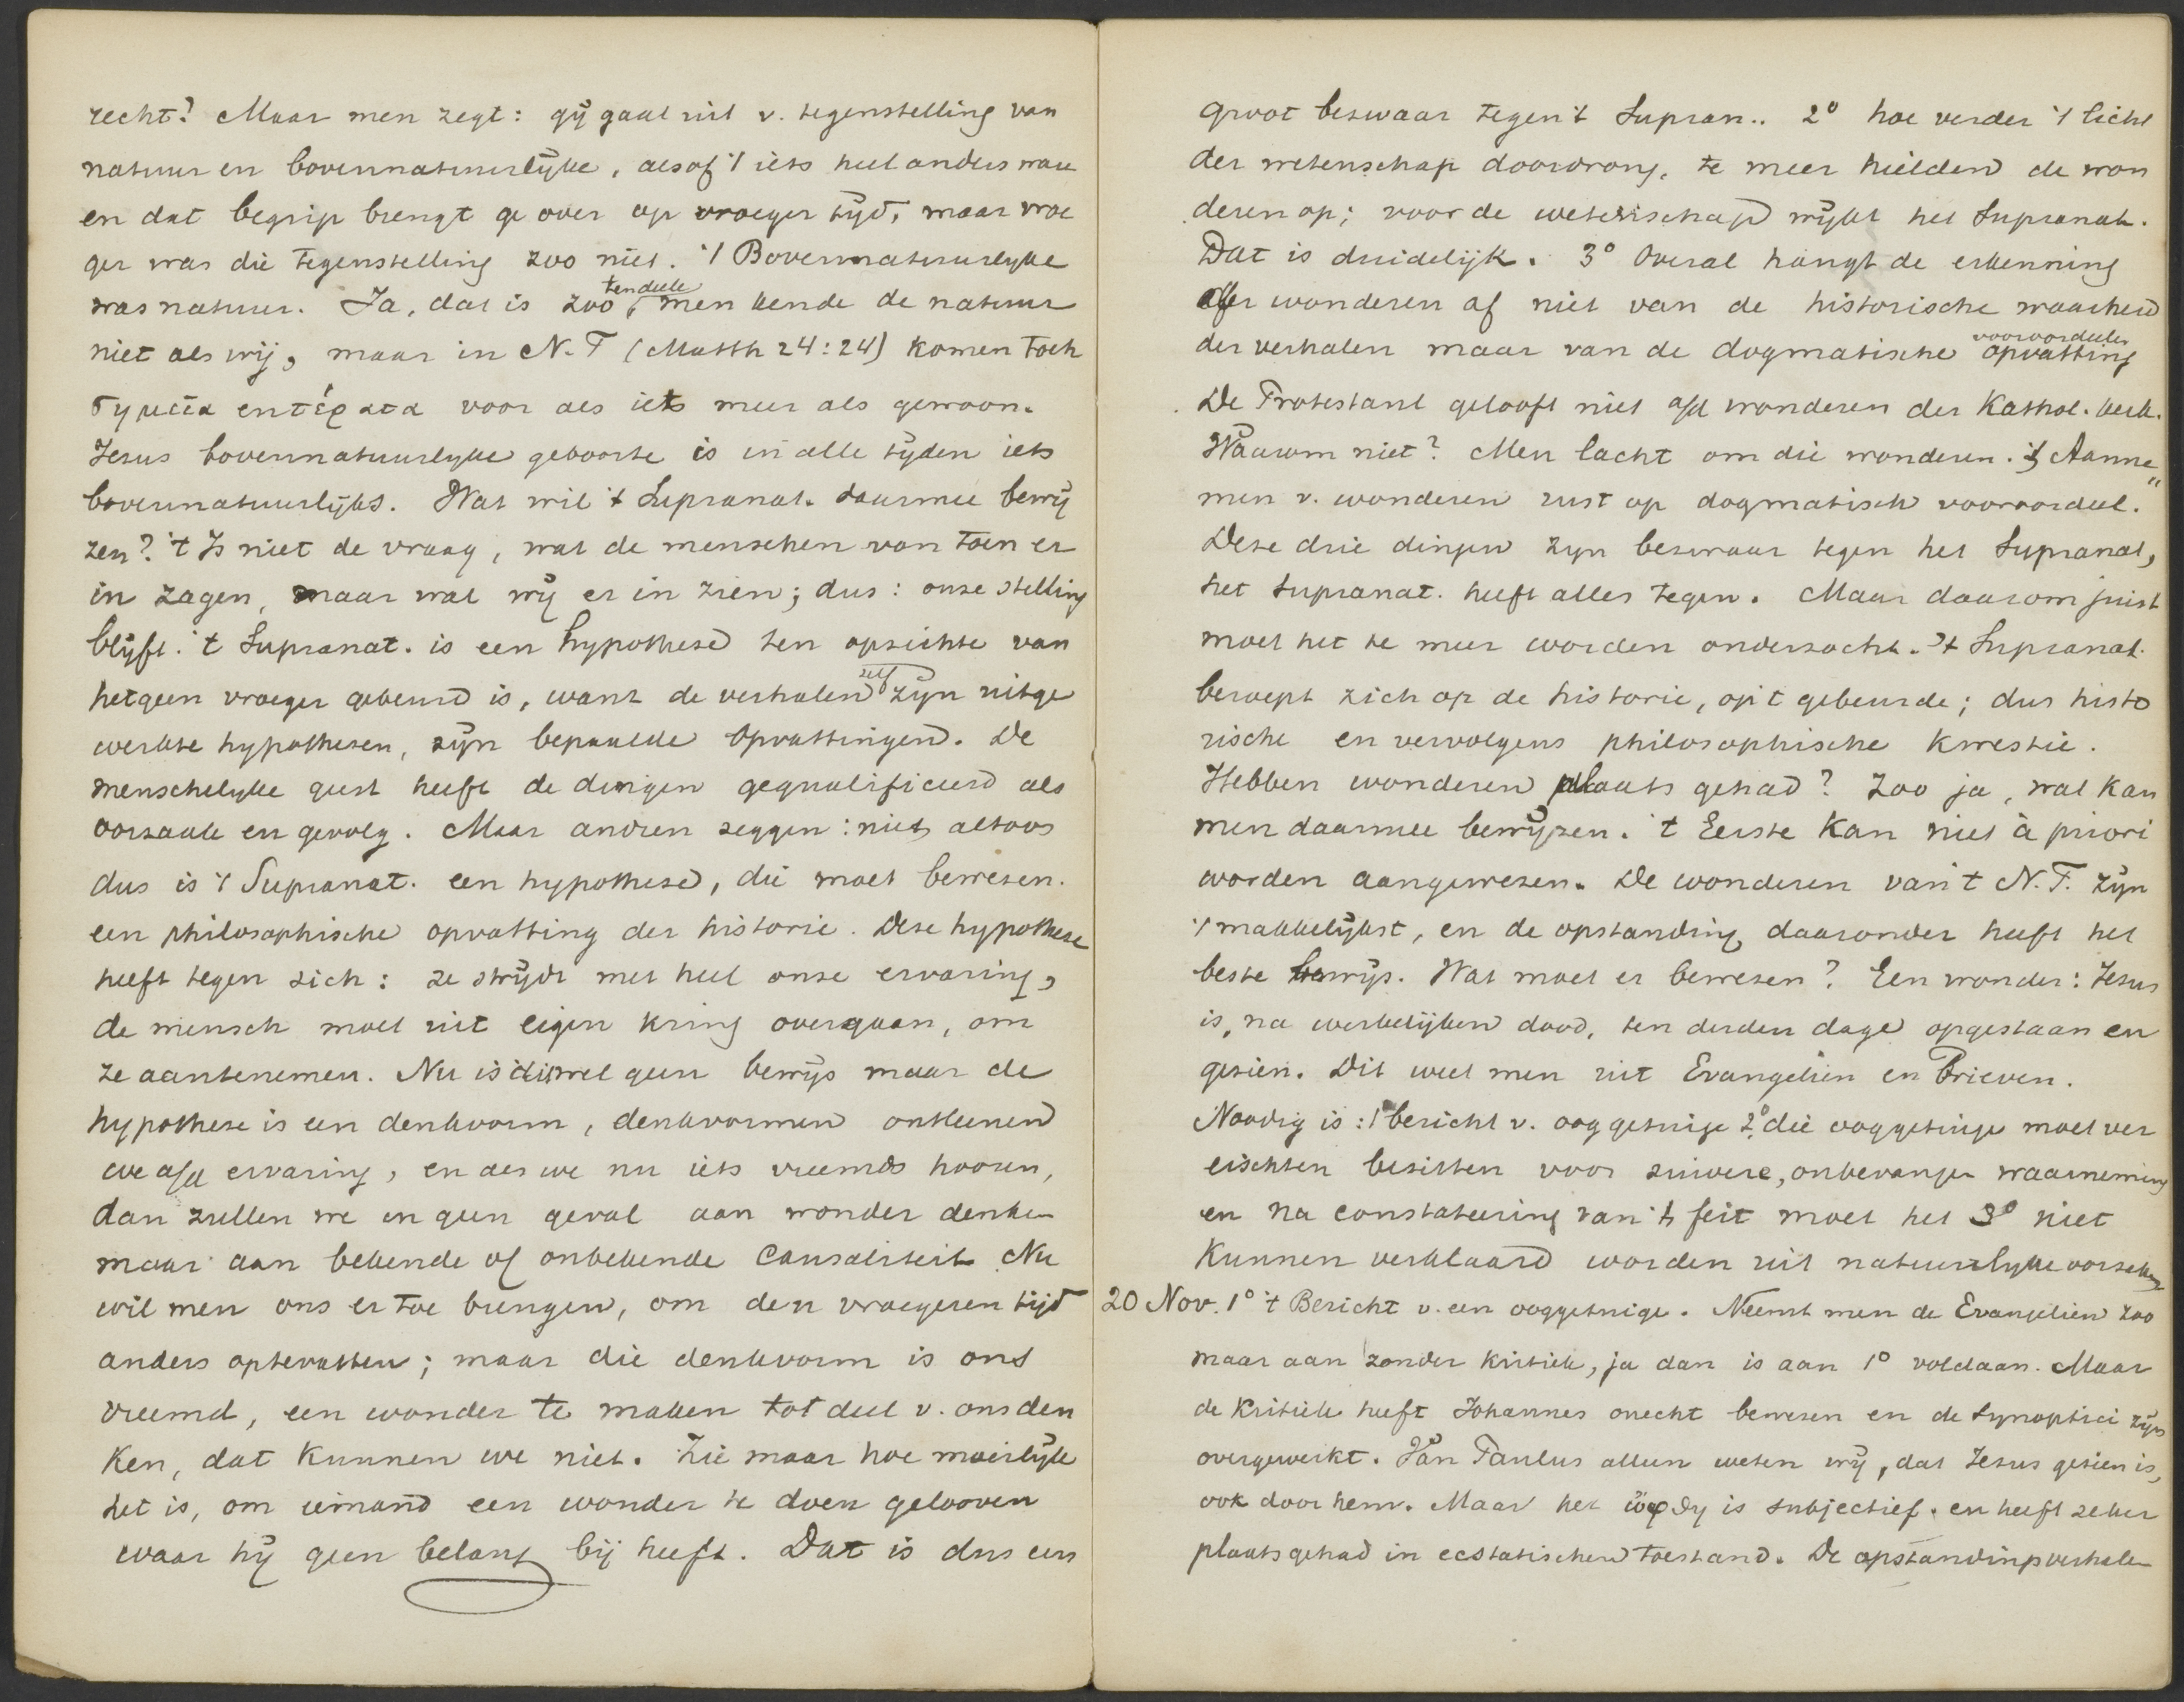 recht? Maar men zegt: gij gaat uit v. tegenstelling van
natuur en bovennatuurlijke, alsof 't iets heel anders ware
en dat begrip brengt ge over op vroeger tijd, maar vroe
ger was die tegenstelling zoo niet. 't Bovennatuurlijke
was natuur. Ja, dat is zoo tendeele, men kende de natuur
niet als wij, maar in N.T (Matth 24:24) komen toch
σημεῖα en τέρατα voor als iets meer als gewoon.
Jezus bovennatuurlijke geboorte is in alle tijden iets
bovennatuurlijks. Wat wil 't Supranat. daarmee bewij
zen? 't Is niet de vraag, wat de menschen van toen er
in zagen, maar wat wij er in zien; dus: onze stelling
blijft. 't Supranat. is een hypothese ten opzichte van
hetgeen vroeger gebeurd is, want de verhalen zelf zijn uitge
werkte hypothesen, zijn bepaalde opvattingen. De
menschelijke geest heeft de dingen gequalificeerd als
oorzaak en gevolg. Maar andren zeggen: niet altoos
dus is 't Supranat. een hypothese, die moet bewezen.
een philosophische opvatting der historie. Deze hypothese
heeft tegen zich: ze strijdt met heel onze ervaring,
de mensch moet uit eigen kring overgaan, om
ze aantenemen. Nu is dit wel geen bewijs maar de
hypothese is een denkvorm, denkvormen ontleenen
we a/d ervaring, en als we nu iets vreemds hooren,
dan zullen we in geen geval aan wonder denken
maar aan bekende of onbekende Causaliteit Nu
wil men ons er toe brengen, om den vroegeren tijd
anders optevatten; maar die denkvorm is ons
vreemd, een wonder te maken tot deel v. ons den
ken, dat kunnen we niet. Zie maar hoe moeilijk
het is, om iemand een wonder te doen gelooven
waar hij geen belang bij heeft. Dat is dus een
groot bezwaar tegen 't Supran.. 2° hoe verder 't licht
der wetenschap doordrong, te meer hielden de won
deren op; voor de wetenschap wijkt het Supranat.
Dat is duidelijk. 3° Overal hangt de erkenning
der wonderen af niet van de historische waarheid
der verhalen maar van de dogmatische vooroordeelen opvatting
De Protestant gelooft niet a/d wonderen der Kathol. kerk.
Waarom niet? Men lacht om die wonderen. 't Aanne
men v. wonderen rust op dogmatisch vooroordeel."
Deze drie dingen zyn bezwaar tegen het Supranat,
het supranat. heeft alles tegen. Maar daarom juist
moet het te meer worden onderzocht. 't Supranat.
beroept zich op de historie, op 't gebeurde; dus histo
rische en vervolgens philosophische kwestie.
Hebben wonderen plaats gehad? Zoo ja, wat kan
men daarmee bewijzen. 't Eerste kan niet à priori
worden aangewezen. De wonderen van 't N.T. zijn
't makkelijkst, en de opstanding daaronder heeft het
beste bewijs. Wat moet er bewezen? Een wonder: Jezus
is, na werkelijken dood, ten derden dage opgestaan en
gezien. Dit weet men uit Evangeliën en Brieven.
Noodig is: 1° bericht v. ooggetuige 2° die ooggetuige moet ver
eischten bezitten voor zuivere, onbevangen waarneming
en na constateering van 't feit moet het 3° niet
kunnen verklaard worden uit natuurlyke oorzaken
20 Nov. 1° 't Bericht v. een ooggetuige. Neemt men de Evangeliën zoo
maar aan zonder kritiek, ja dan is aan 1° voldaan. Maar
de kritiek heeft Johannes onecht bewezen en de Synoptici zijn
overgewerkt. Van Paulus alleen weten wij, dat Jezus gezien is,
ook door hem. Maar het ὤφθη is subjectief. en heeft zeker
plaats gehad in ecstatischen toestand. De opstandingsverhalen